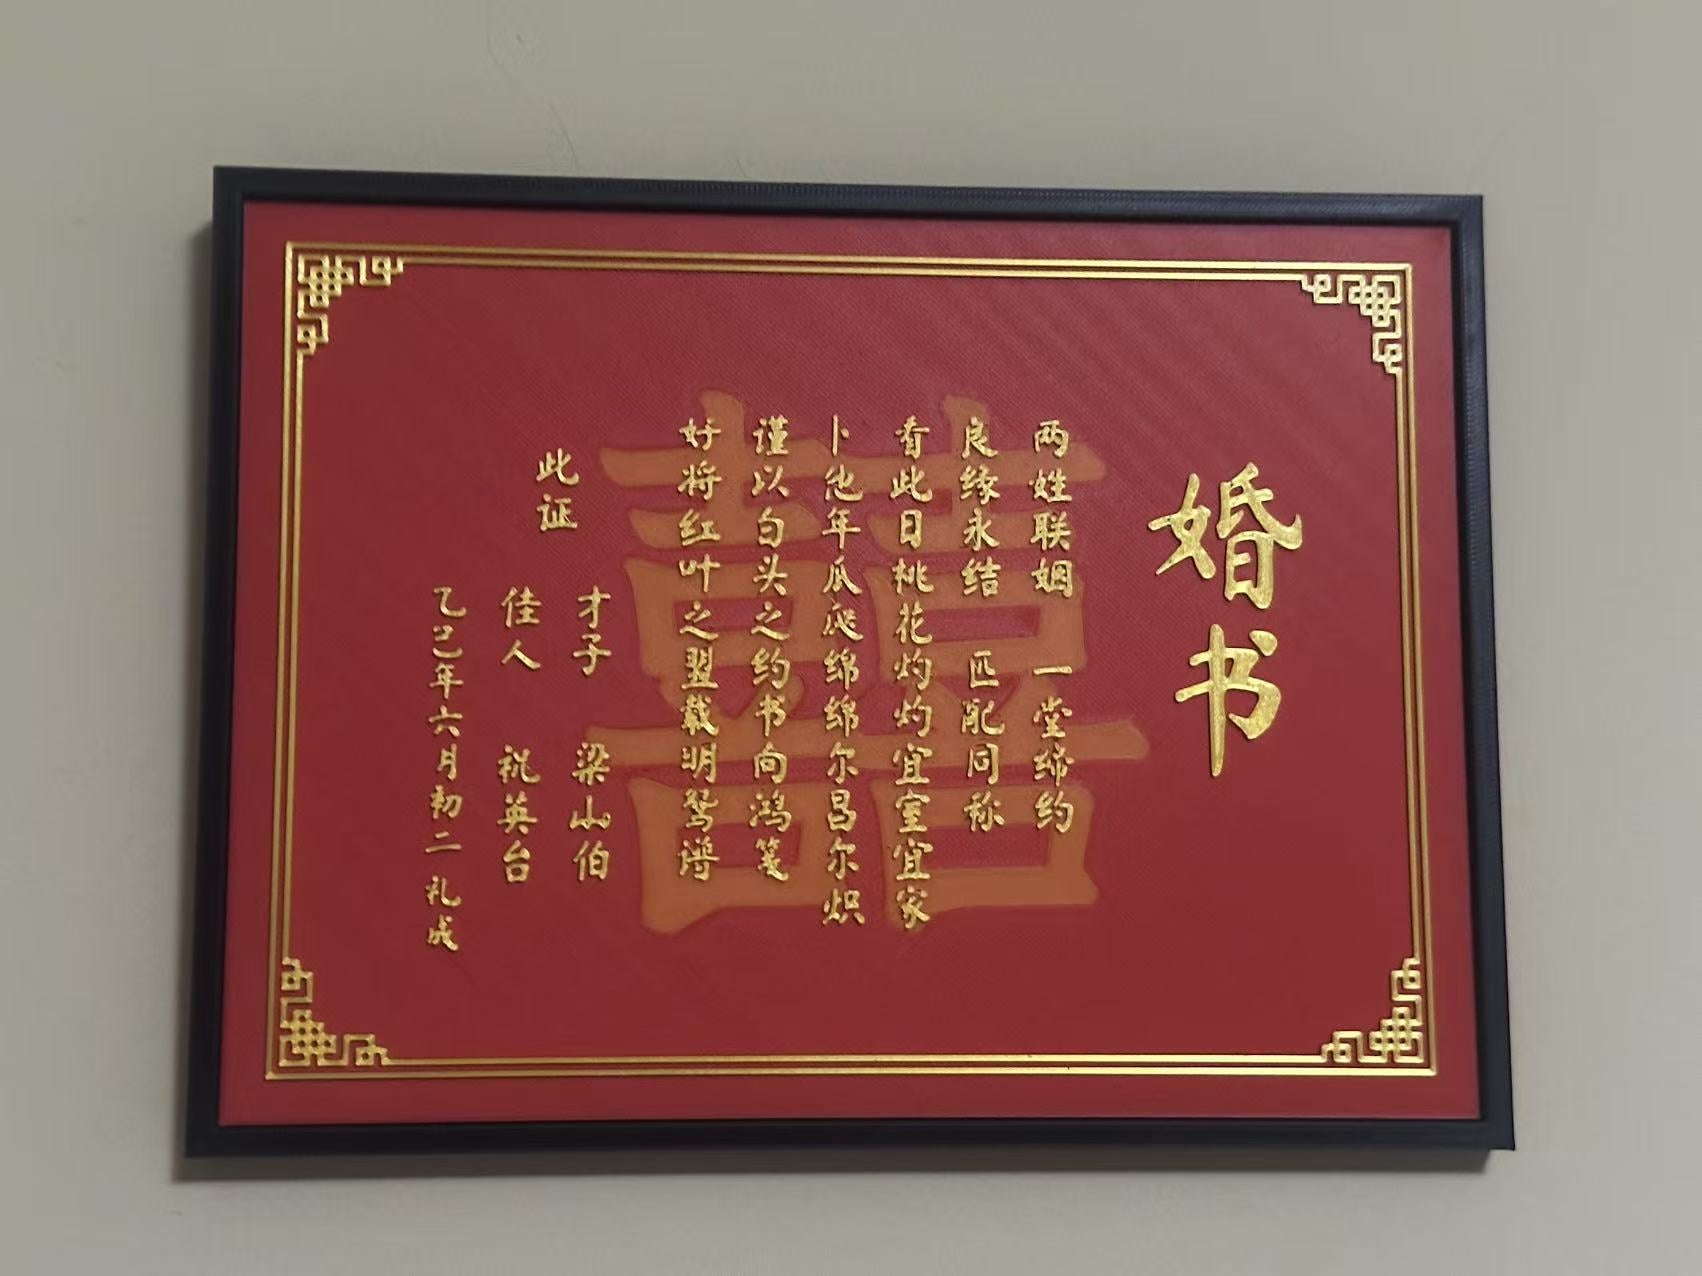 婚书
两姓联姻 一堂缔约
良缘永结 匹配同称
看此日桃花灼灼宜室宜家
卜他年瓜瓞绵绵尔昌尔炽
谨以白头之约书向鸿笺
好将红叶之盟载明鸳谱
此证
才子 梁山伯
佳人 祝英台
乙巳年六月初二 礼成
囍